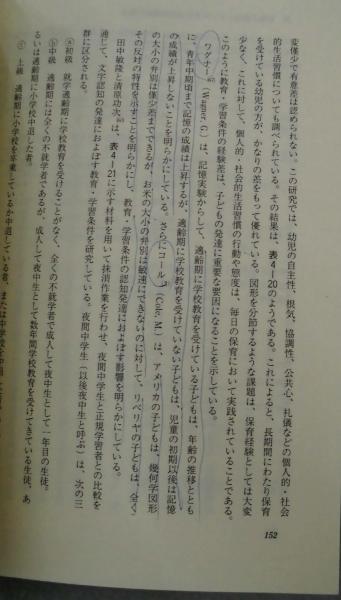 変僅少で有意差は認められない。この研究では、幼児の自主性、根気、協調性、公共心、礼儀などの個人的・社会
的生活習慣についても調べられている。その結果は、表4-20のようである。これによると、長期間にわたり保育
を受けている幼児の方が、かなりの差をもって優れている。図形を分節するような課題は、保育経験としては大変
少なく、これに対して、個人的・社会的生活習慣の行動や態度は、毎日の保育において実践されていることである。
このように教育・学習条件の経験差は、子どもの発達に重要な要因になることを示している。
ワグナー(Wagner, G.)は、記憶実験からして、適齢期に学校教育を受けている子どもは、年齢の推移ととも
に、青年中期頃まで記憶の成績は上昇するが、適齢期に学校教育を受けていない子どもは、児童の初期以後は記憶
の成績が上昇しないことを明らかにしている。さらにコール(Cole, M.)は、アメリカの子どもは、幾何学図形
の大小の弁別は僅少差までできるが、お米の大小の弁別は敏速にできないのに対して、リベリヤの子どもは、全く
その反対の特性を示すことを明らかにし、教育・学習条件の認知発達におよぼす影響を明らかにしている。
田中敏隆と清原功次は、表4-21に示す材料を用いて抹消作業を行わせ、夜間中学生と正規学習者との比較を
通じて、文字認知の発達におよぼす教育・学習条件を研究している。夜間中学生(以後夜中生と呼ぶ)は、次の三
群に区分される。
ⓐ初級 就学適齢期に学校教育を受けることがなく、全くの不就学者で成人して夜中生として一年目の生徒。
ⓑ中級 適齢期には全くの不就学者であるが、成人して夜中生として数年間学校教育を受けてきている生徒、あ
るいは適齢期に小学校中退した者。
ⓒ上級 適齢期に小学校を卒業しているか中退している者、または中学校を
152